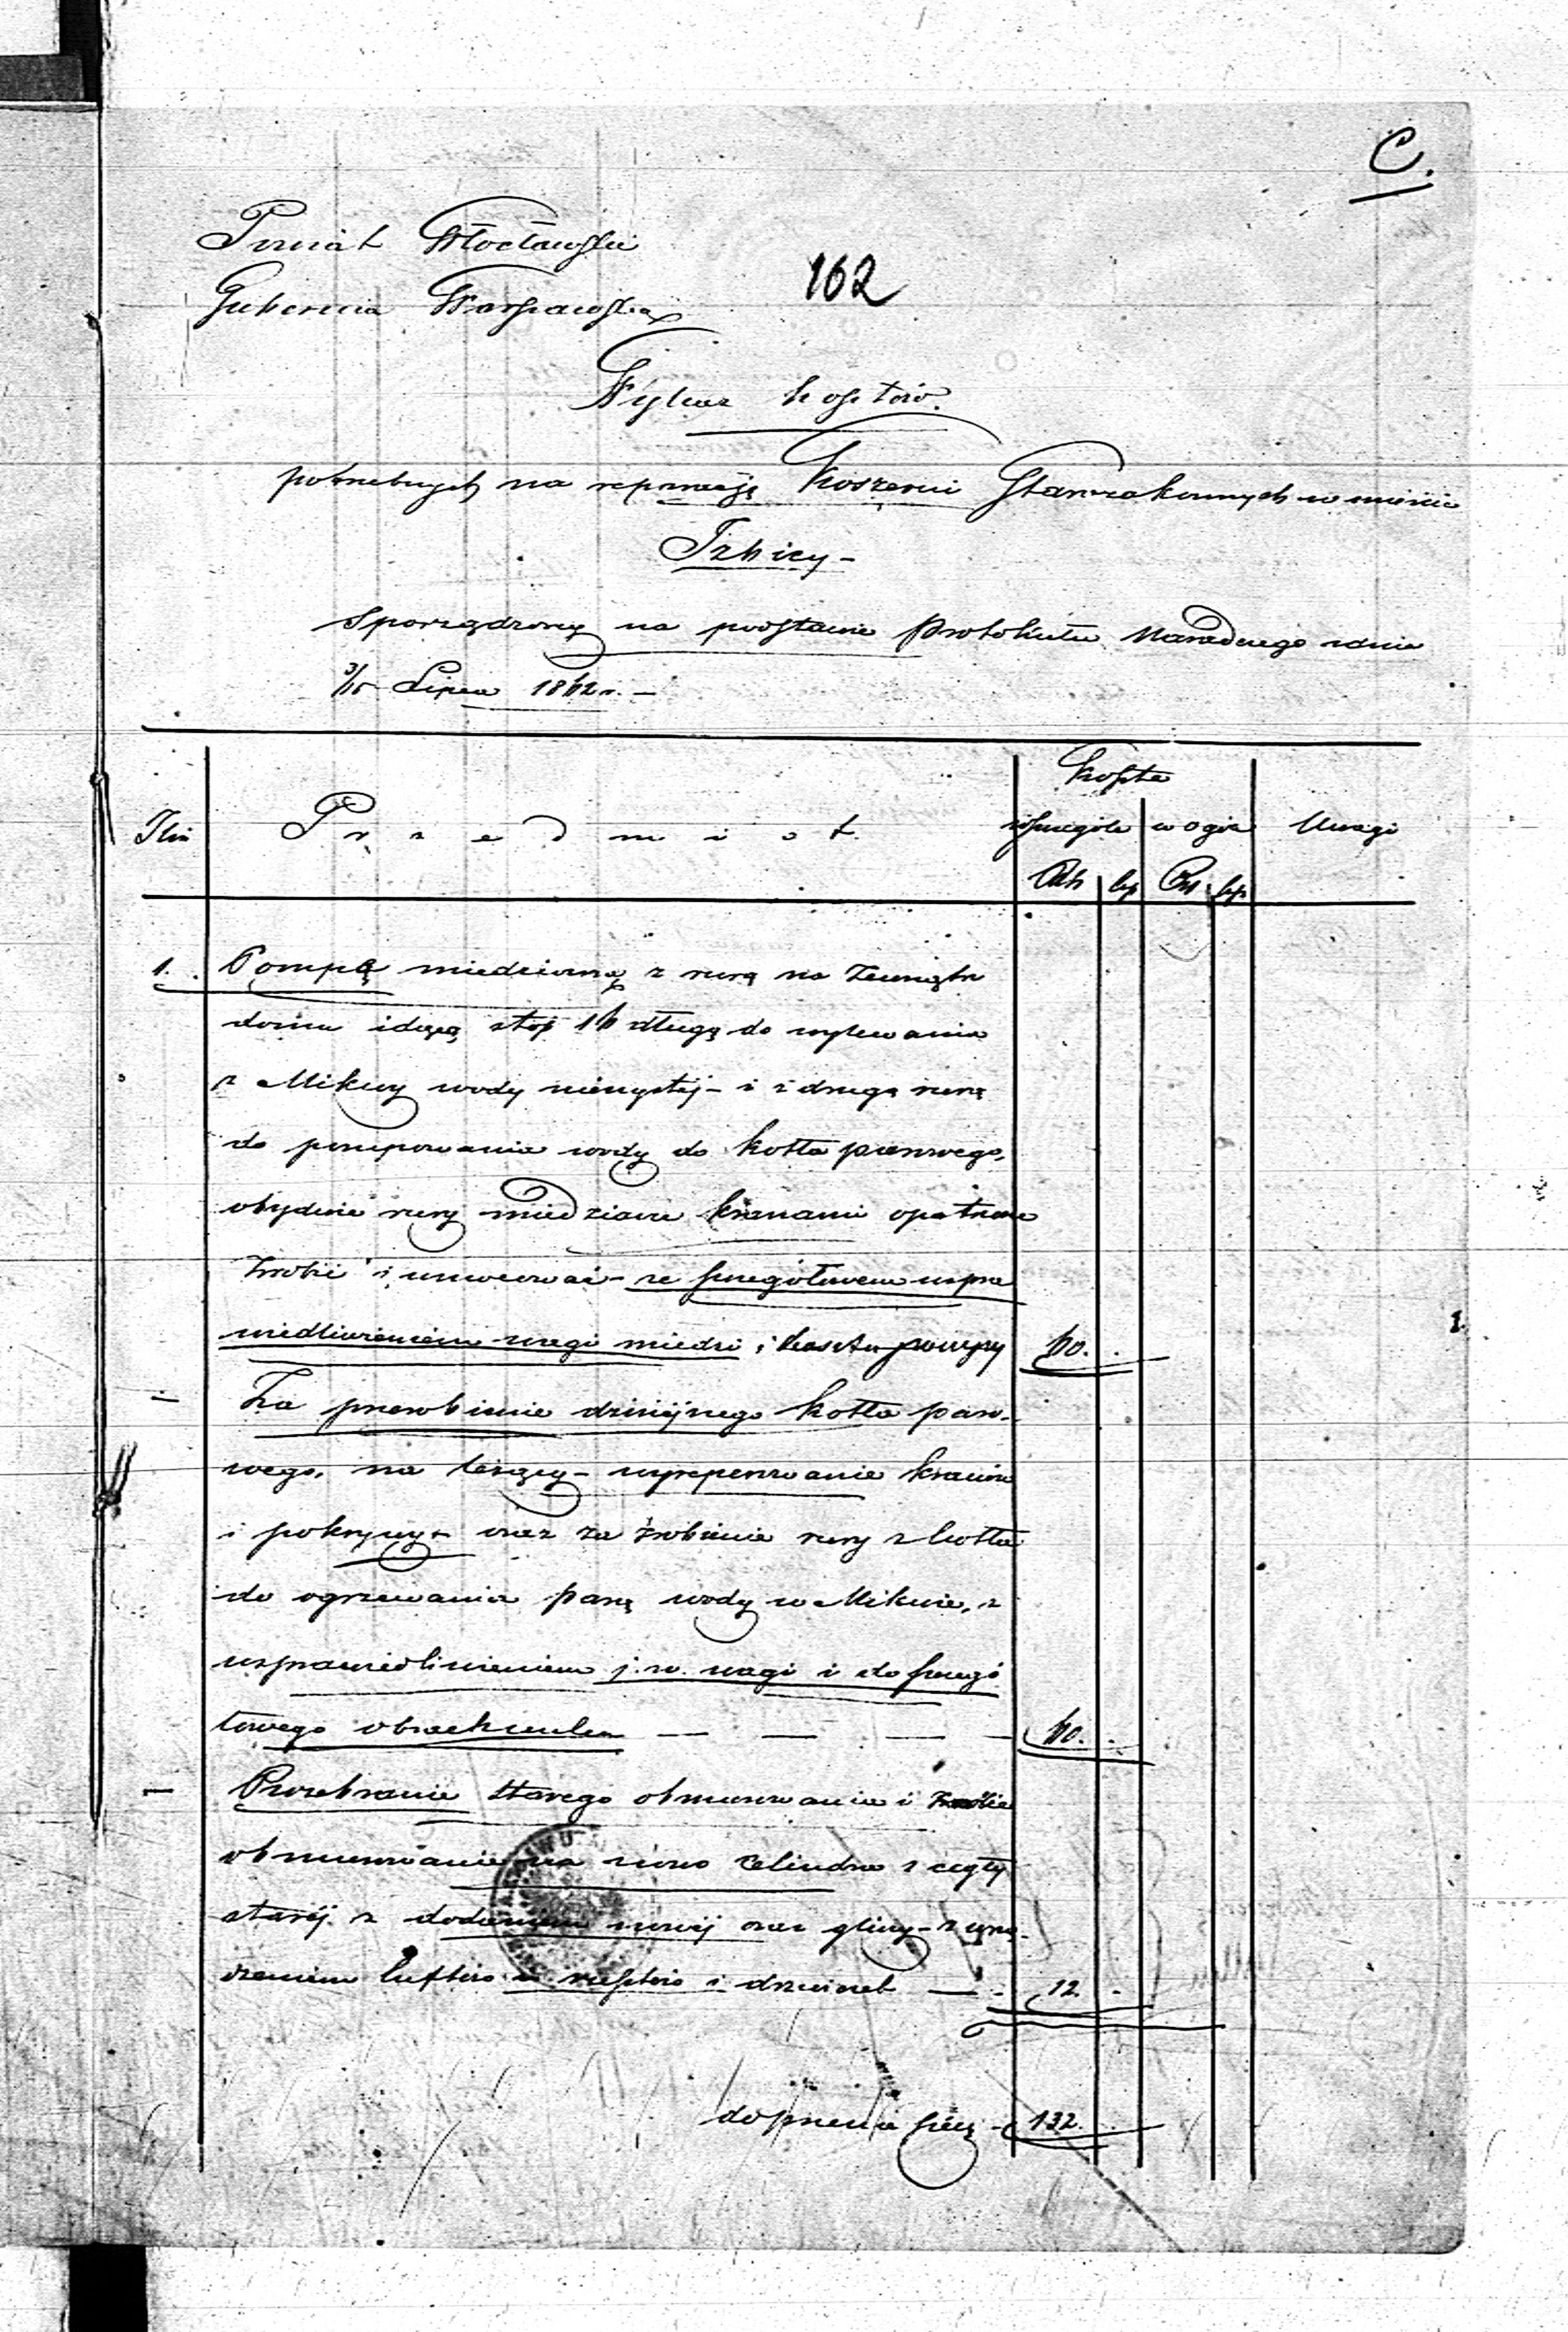 C.
Powiat Włocławski
162
Gubernia Warszawska
Wykaz kosztów.
potrzebnych na reparacją Koszerni Starozakonnych w mieście
Izbicy –
Sporządzony na podstawie Protokułu Naradnego z dnia
3/15 Lipca 1862 r. –
Koszta
Przedmiot. szczególe w ogóle Uwagi
Rsb kp Rsb kp
1. Pompę miedzianną z rurą na zewnątrz
domu idącą stop 16 długą do wylewania
z Mikwy wody nieczystéj – i z drugą rurą
do pompowania wody do kotła parowego,
obydwie rury miedziane kranami opatrzone
zrobić i umocować – ze szczegółowem uspra
wiedliwieniem wagi miedzi i kosztu pompy 60.
– Za przerobienie dzisiéjszego kotła paro-
wego, na leżący – wyreperowanie kranów
i pokrywy – oraz za zrobienie rury z kotła
do ogrzewania parą wody w Mikwie, z
usprawiedliwieniem j. w. wagi i do szczegó
łowego obrachunku — — — — 60.
– Rozebranie starego obmurowania i
obmurowanie na nowo celindra z cegły
staréj z dodaniem nowéj oraz gliny – z urzą-
dzeniem luftów rusztów i drzwiczek — 12.
do przeniesienia 132.